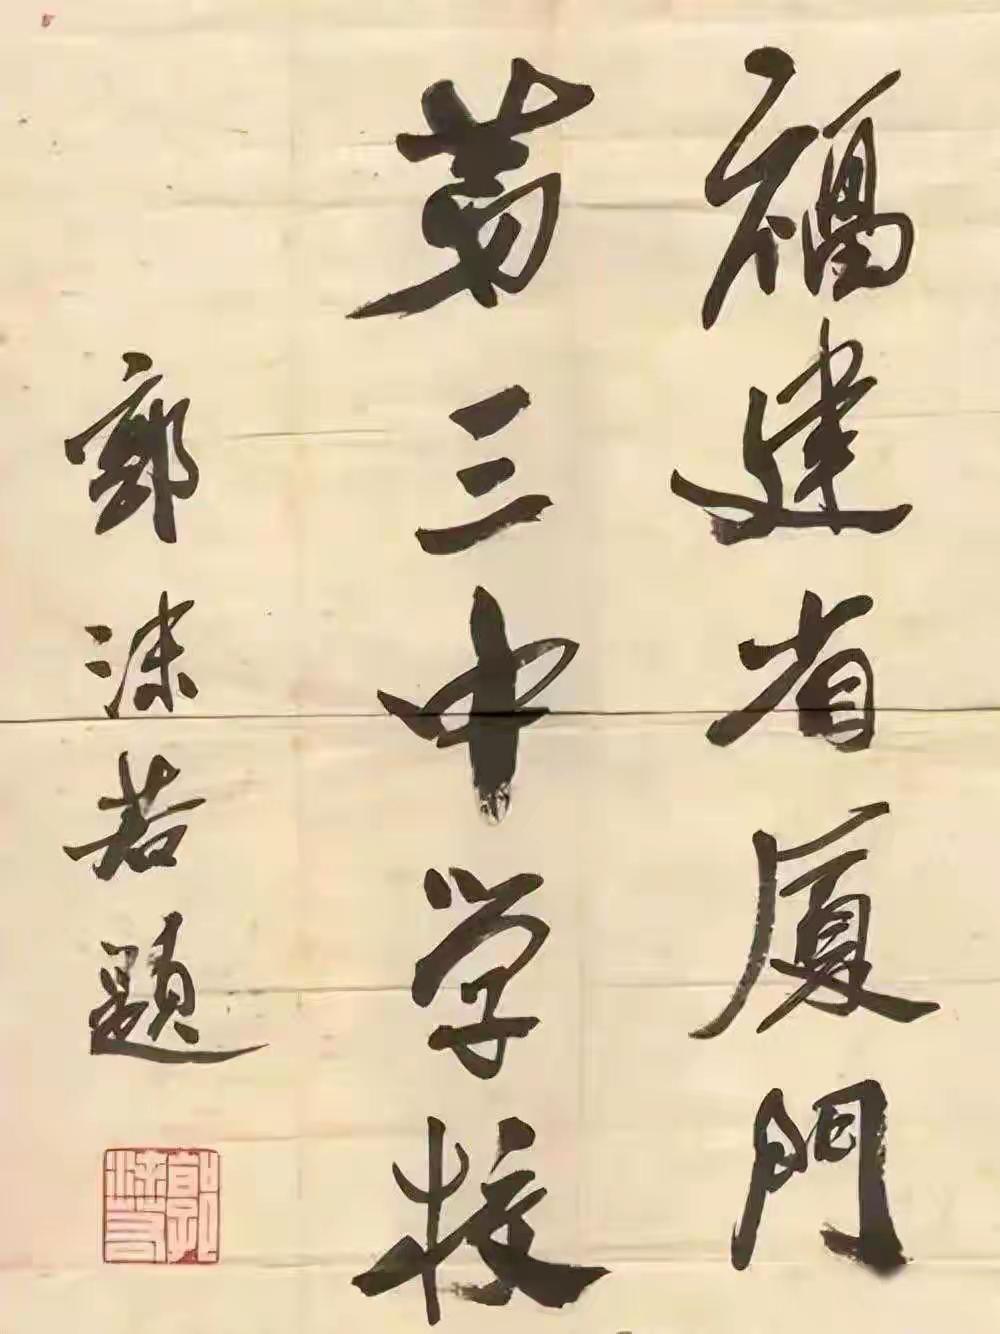 福建省厦門
苐三中学校
郭沫若题
郭沫若